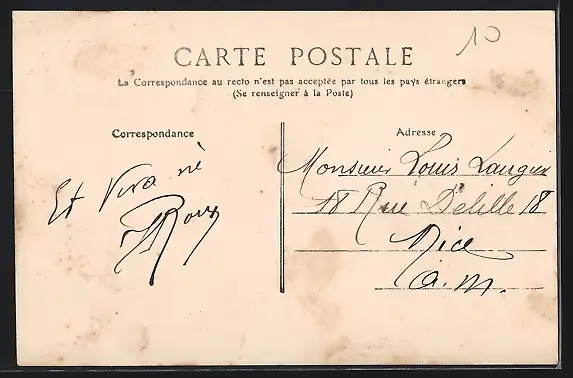 10
CARTE POSTALE
La Correspondance au recto n'est pas acceptée par tous les pays étrangers
(Se renseigner à la Poste)
Correspondance
Adresse
Et Viva
Monsieur Louis
18 Rue Delille 18
Nice
A. M.